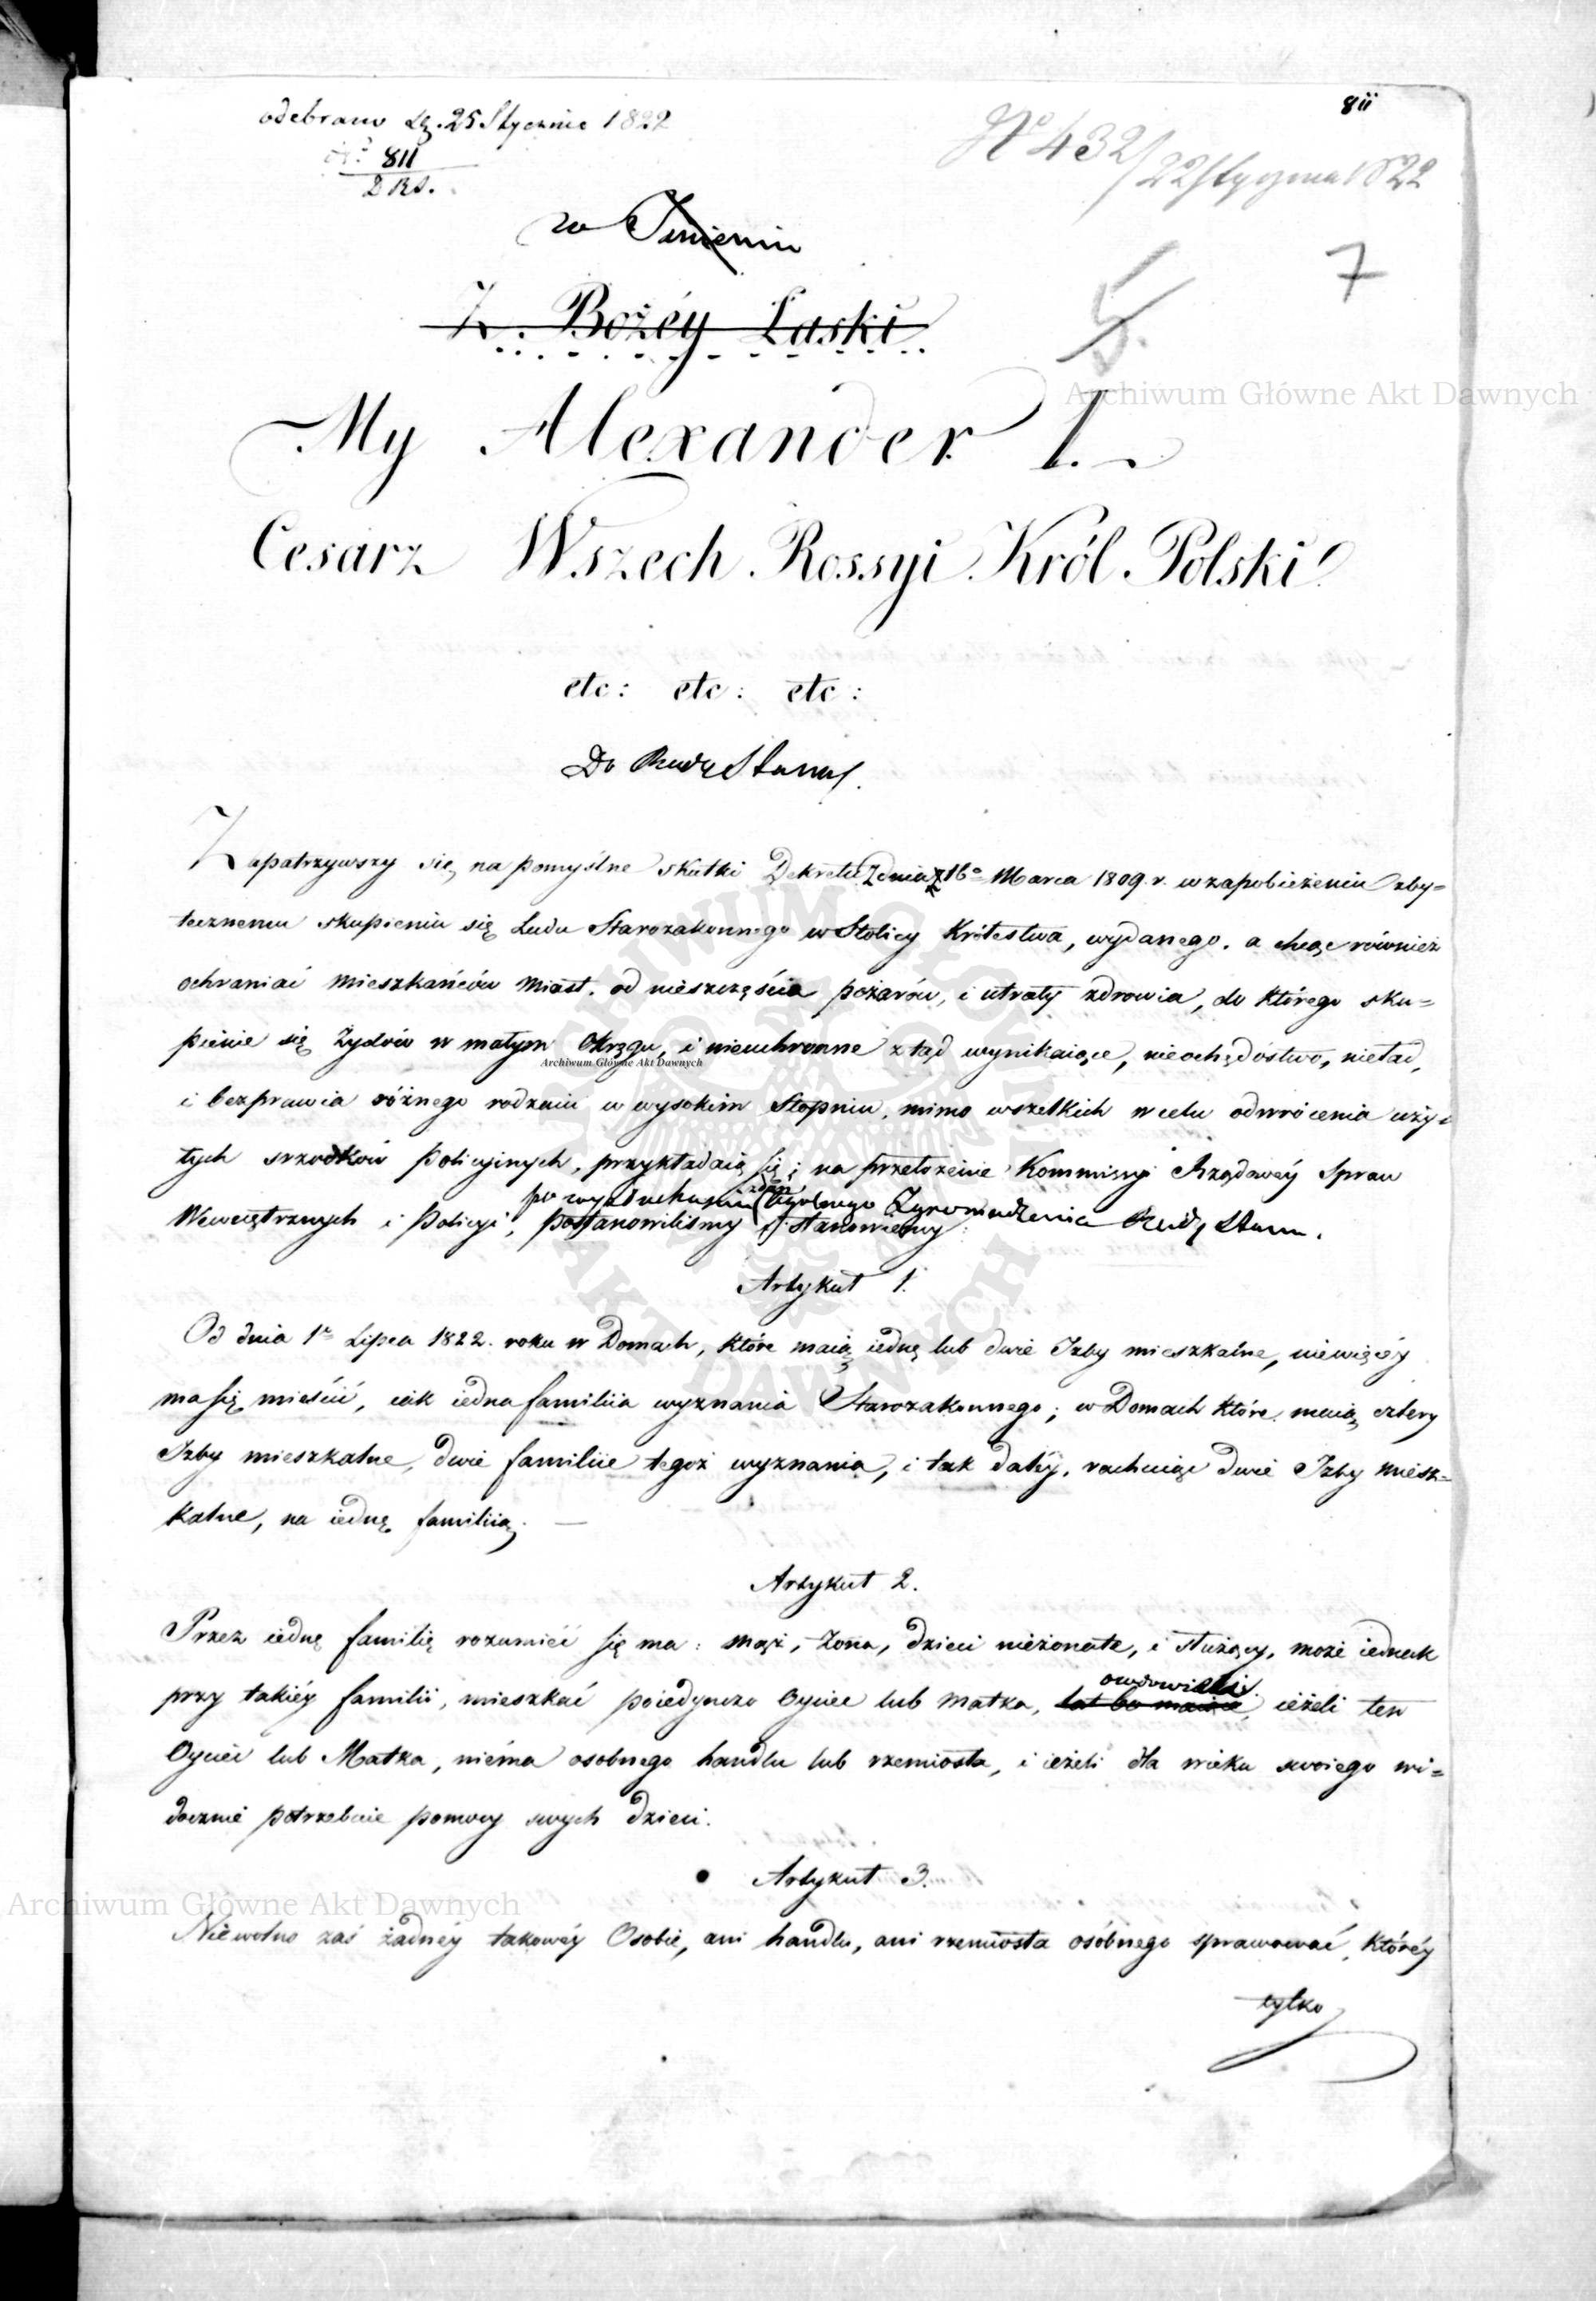 odebrano d. 25 Stycznia 1822
811
No 811
D R S.
No 432/22 Stycznia 1822
w Imieniu
7
Z Bożéy Łaski
5.
Archiwum Główne Akt Dawnych
My Alexander I.
Cesarz Wszech Rossyi Król Polski
etc: etc: etc:
Do Rady Stanu
Zapatrzywszy się na pomyślne skutki Dekretu z dnia 16o Marca 1809 r. w zapobieżeniu zby=
tecznemu skupieniu się Ludu Starozakonnego w Stolicy Królestwa, wydanego. a chcąc również
ochraniać mieszkańców Miast. od nieszczęścia pożarów, i utraty zdrowia, do którego sku=
pienie się Żydów w małym Okręgu, i nieuchronne ztąd wynikaiące, nieochędóstwo, nieład,
Archiwum Główne Akt Dawnych
i bezprawia różnego rodzaiu w wysokim Stopniu. mimo wszelkich w celu odwrócenia uży
tych srzodków policyinych, przykładaią się; na przełożenie Kommissyi Rządowéy Spraw
po wysłuchaniu zdań Ogólnego Zgromadzenia Rady Stanu.
Wewnętrznych i Policyi, postanowiliśmy i stanowiemy:
Artykuł 1.
Od dnia 1o Lipca 1822. roku w Domach, które maią iednę lub dwie Izby mieszkalne, niewięcéy
ma się mieścić, iak iedna familiia wyznania Starozakonnego; w Domach które maią cztery
Izby mieszkalne, dwie familiie tegoż wyznania, i tak daléy, rachuiąc dwie Izby miesz=
kalne, na iednę familiią. —
Artykuł 2.
Przez iednę familię rozumieć się ma: mąż, żona, dzieci nieżonate, i służący, może iednak
owdowiali
przy takiéy familii, mieszkać poiedynczo Oyciec lub Matka, lat 60 maiące, ieżeli ten
Oyciec lub Matka, niema osobnego handlu lub rzemiosła, i ieżeli dla wieku swoiego wi=
docznie potrzebuie pomocy swych dzieci.
Artykuł 3.
Archiwum Główne Akt Dawnych
Niewolno zaś żadnéy takowéy Osobie, ani handlu, ani rzemiosła osóbnego sprawować, któréy
tylko
ARCHIWUM GŁÓWNE AKT DAWNYCH